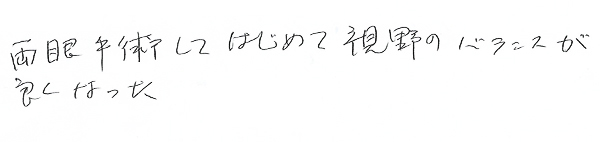 両眼手術してはじめて視野のバランスが
良くなった